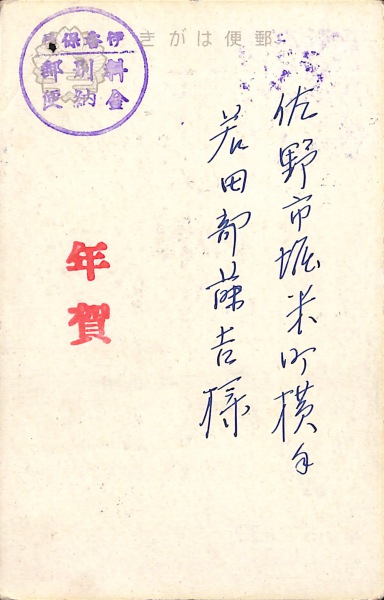 郵便はがき
佐野市堀米町横手
若田部藤吉様
年賀
伊香保局
料金
別納
郵便